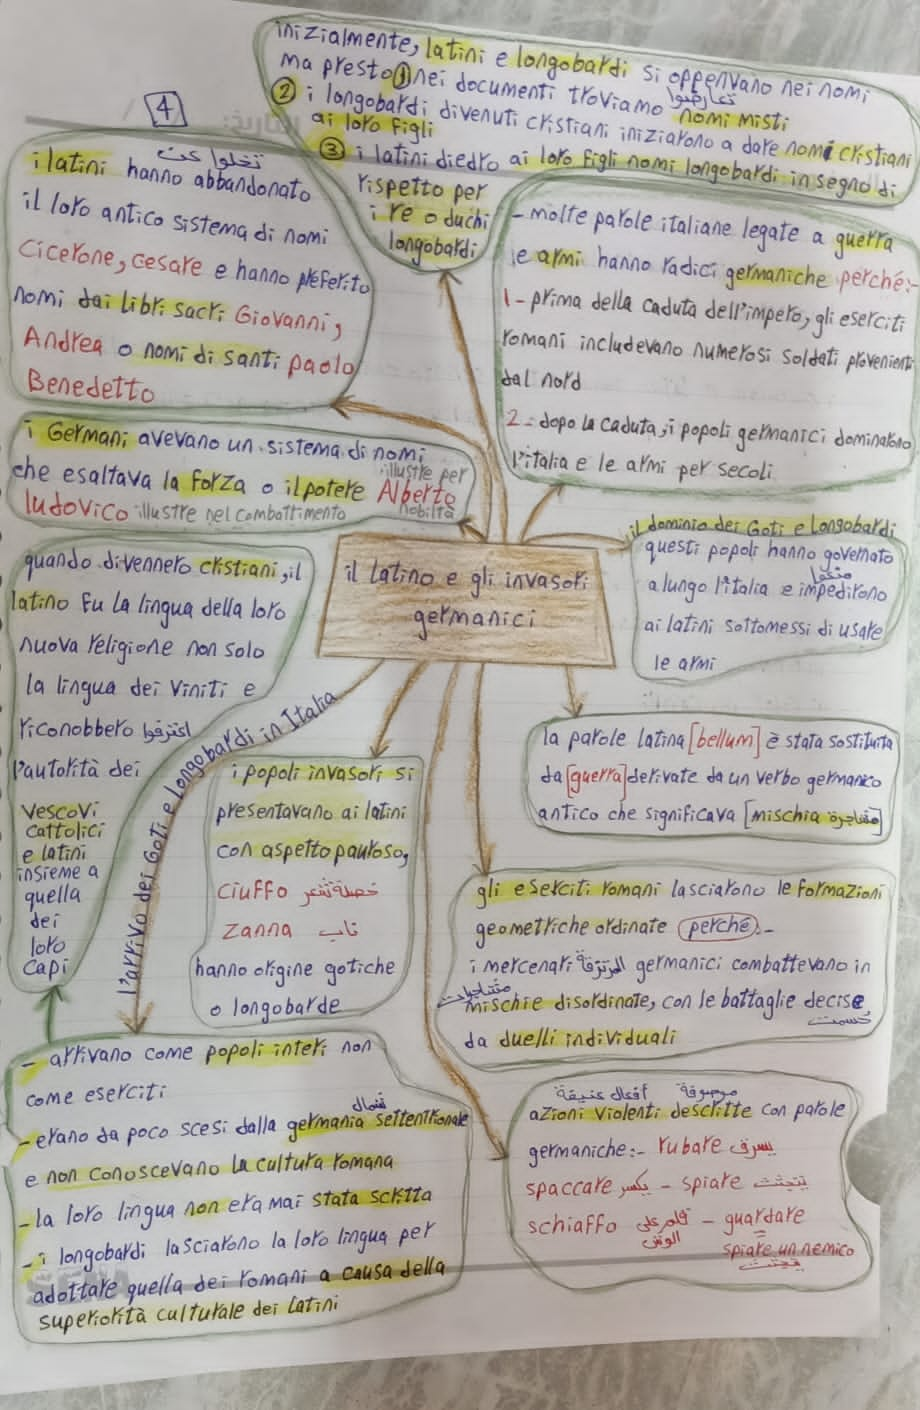 inizialmente, latini e longobardi si oppenvano nei nomi
ma presto ① nei documenti troviamo nomi misti
تعارضوا
② i longobardi divenuti cristiani iniziarono a dare nomi cristiani
ai loro figli
③ i latini diedro ai loro figli nomi longobardi in segno di
rispetto per
i re o duchi
longobardi
4
التاريخ:
تخلوا عن
i latini hanno abbandonato
il loro antico sistema di nomi
Cicerone, cesare e hanno preferito
nomi dai libri sacri Giovanni,
Andrea o nomi di santi paolo
Benedetto
- molte parole italiane legate a guerra
e armi hanno radici germaniche perché:-
1- prima della caduta dell'impero, gli eserciti
romani includevano numerosi soldati provenienti
dal nord
2- dopo la caduta, i popoli germanici dominarono
l'italia e le armi per secoli
i Germani avevano un sistema di nomi
che esaltava la forza o il potere Alberto
illustre per nobiltà
ludovico illustre nel combattimento
il dominio dei Goti e Longobardi
questi popoli hanno governato
a lungo l'italia e impedirono
ai latini sottomessi di usare
le armi
il latino e gli invasori
germanici
quando divennero cristiani, il
latino fu la lingua della loro
nuova religione non solo
la lingua dei viniti e
riconobbero اعترفوا
l'autorità dei
vescovi
cattolici
e latini
insieme a
quella
dei
loro
capi
l'arrivo dei Goti e longobardi in Italia
i popoli invasori si
presentavano ai latini
con aspetto pauroso,
ciuffo خصلة شعر
zanna ناب
hanno origine gotiche
o longobarde
la parole latina [bellum] è stata sostituita
da [guerra] derivate da un verbo germanico
antico che significava [mischia مشاجرة]
gli eserciti romani lasciarono le formazioni
geometriche ordinate perché:-
i mercenari المرتزقة germanici combattevano in
مشاجرات
mischie disordinate, con le battaglie decise
حُسمت
da duelli individuali
- arrivano come popoli interi non
come eserciti
شمال
- erano da poco scesi dalla germania settentrionale
e non conoscevano la cultura romana
- la loro lingua non era mai stata scritta
- i longobardi lasciarono la loro lingua per
adottare quella dei romani a causa della
superiorità culturale dei latini
أفعال عنيفة موصوفة
azioni violenti descritte con parole
germaniche:- rubare يسرق
spaccare يكسر - spiare يتجسس
schiaffo قلم على الوش - guardare
=
spiare un nemico